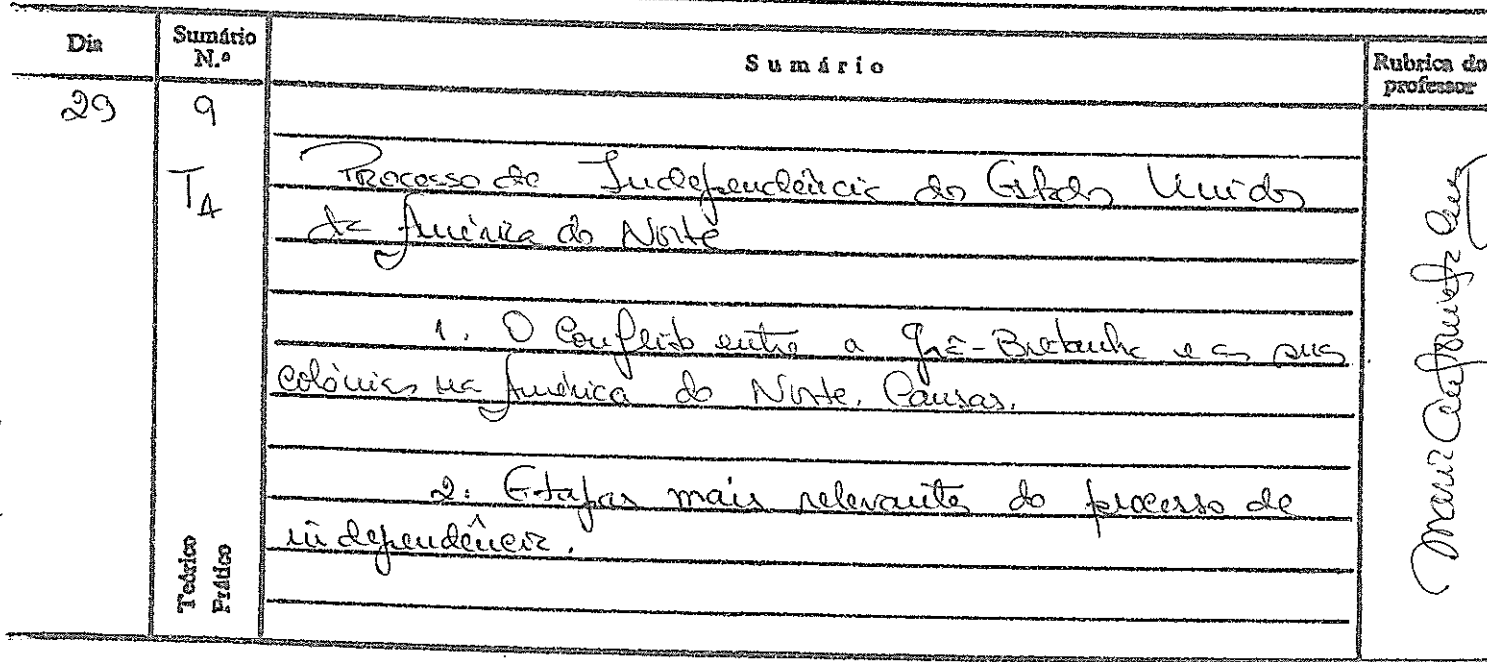 Dia
Sumário N.º
Sumário
Rubrica do professor
29
9
TA
Processo de Independência dos Estados Unidos
da América do Norte
1. O Conflito entre a Grã-Bretanha e as suas
colónias na América do Norte. Causas.
2. Etapas mais relevantes do processo de
independência.
Teórico
Prático
Maria